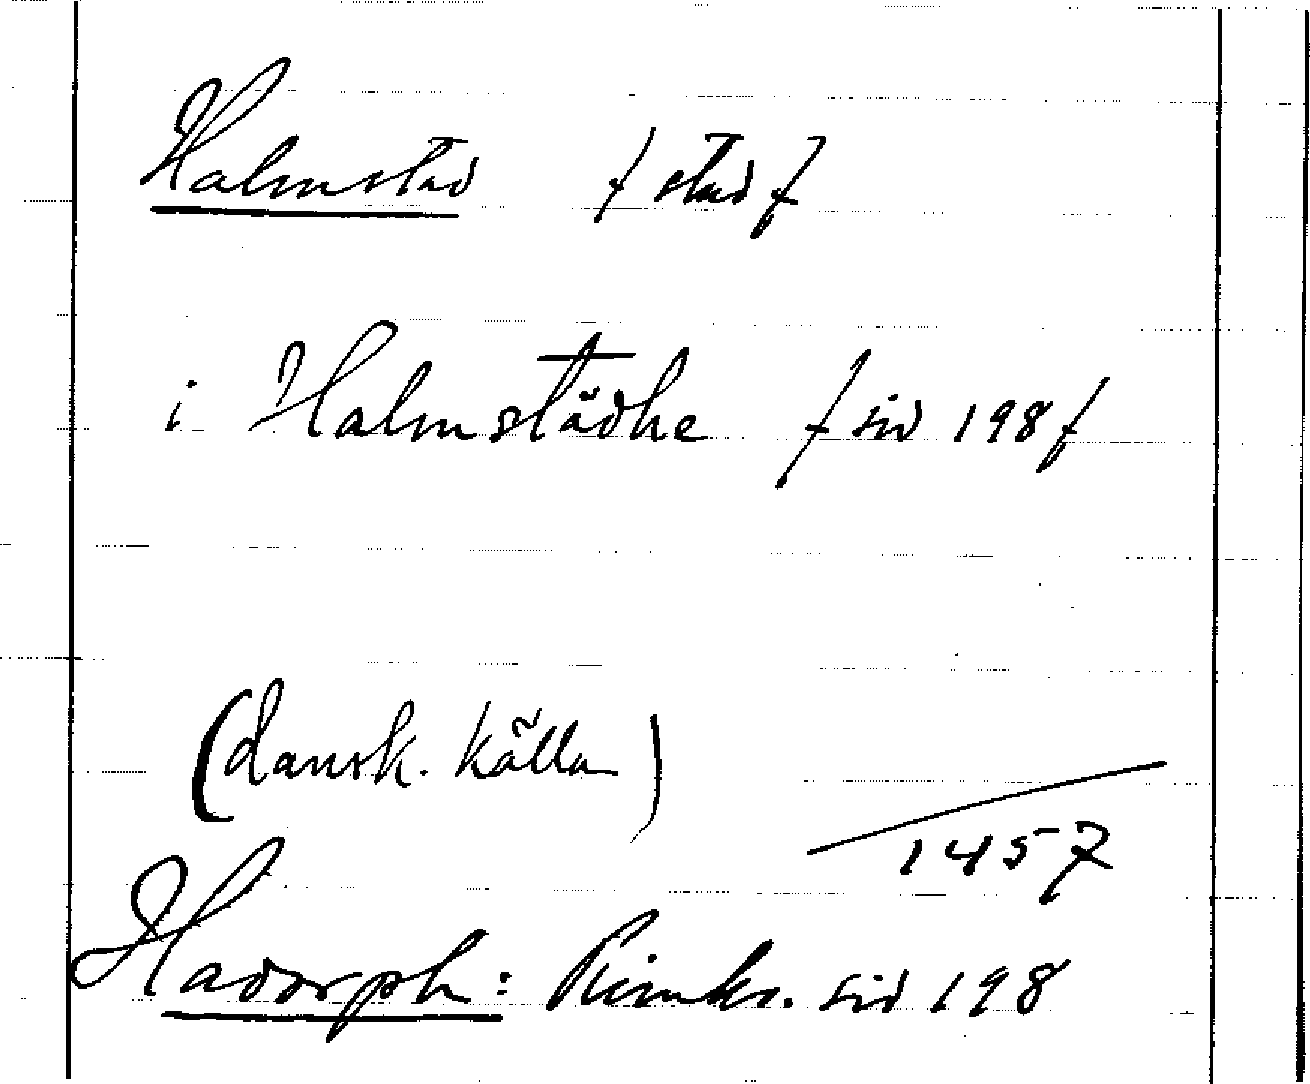 Halmstad / stad /
i Halmstädhe / sid 198 /
(dansk. källa)
1457
Hadorph: Rimkr. sid 198